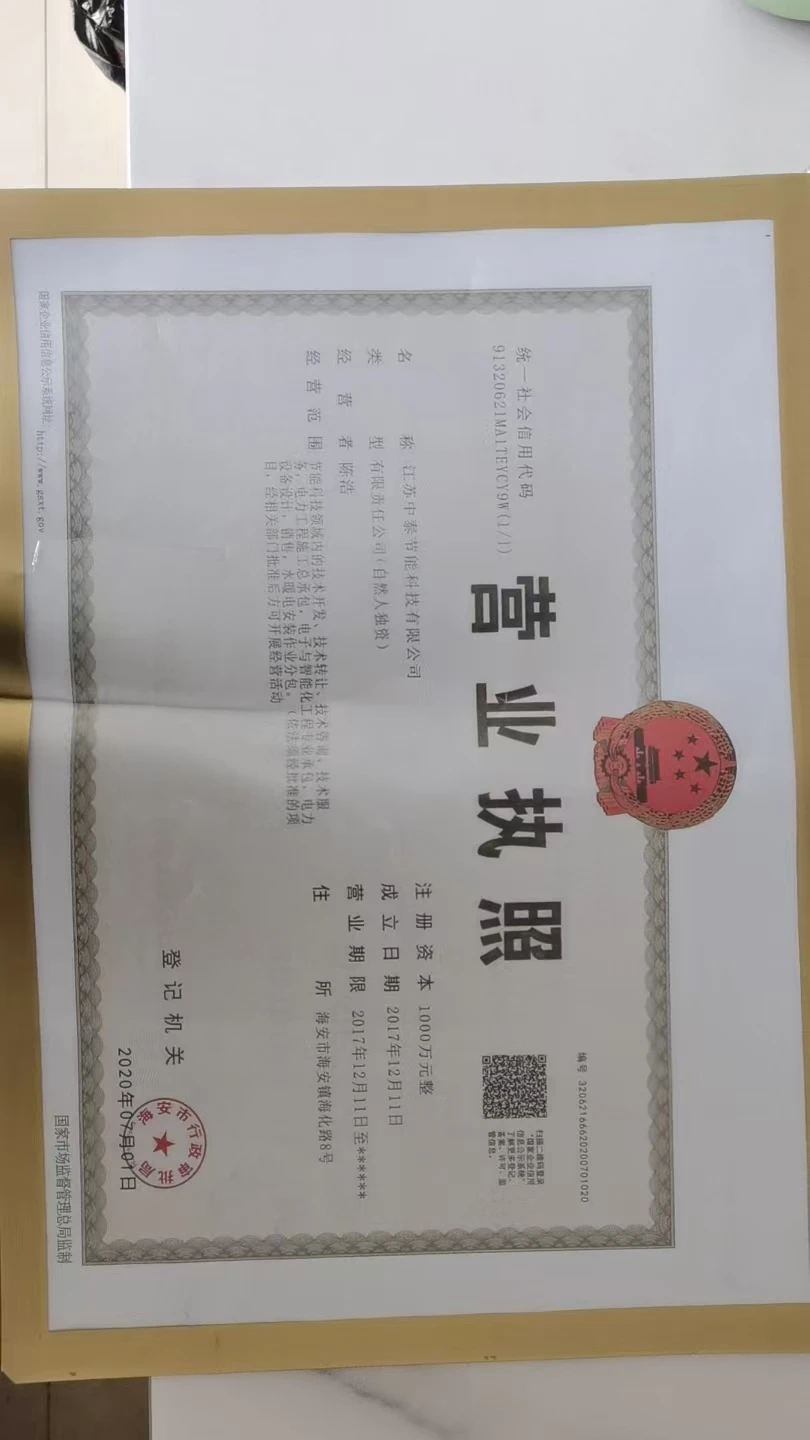 编号 32062166620200701020
统一社会信用代码
91320621MA1TEYCY9W(1/1)
营业执照
扫描二维码登录
“国家企业信用
信息公示系统”
了解更多登记、
备案、许可、监
管信息。
名称 江苏中泰节能科技有限公司
类型 有限责任公司(自然人独资)
经营者 陈浩
经营范围 节能科技领域内的技术开发、技术转让、技术咨询、技术服
务,电力工程施工总承包,电子与智能化工程专业承包,电力
设备设计,销售,水暖电安装作业分包。(依法须经批准的项
目,经相关部门批准后方可开展经营活动
注册资本 1000万元整
成立日期 2017年12月11日
营业期限 2017年12月11日至******
住所 海安市海安镇海化路8号
登记机关
海安市行政审批局
2020年07月01日
国家企业信用信息公示系统网址: http://www.gsxt.gov
国家市场监督管理总局监制